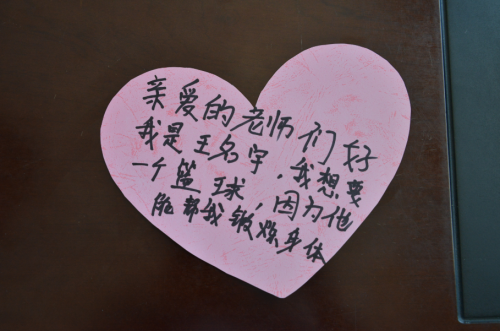 亲爱的老师们好
我是王名宇,我想要
一个篮球,因为他
能帮我锻炼身体